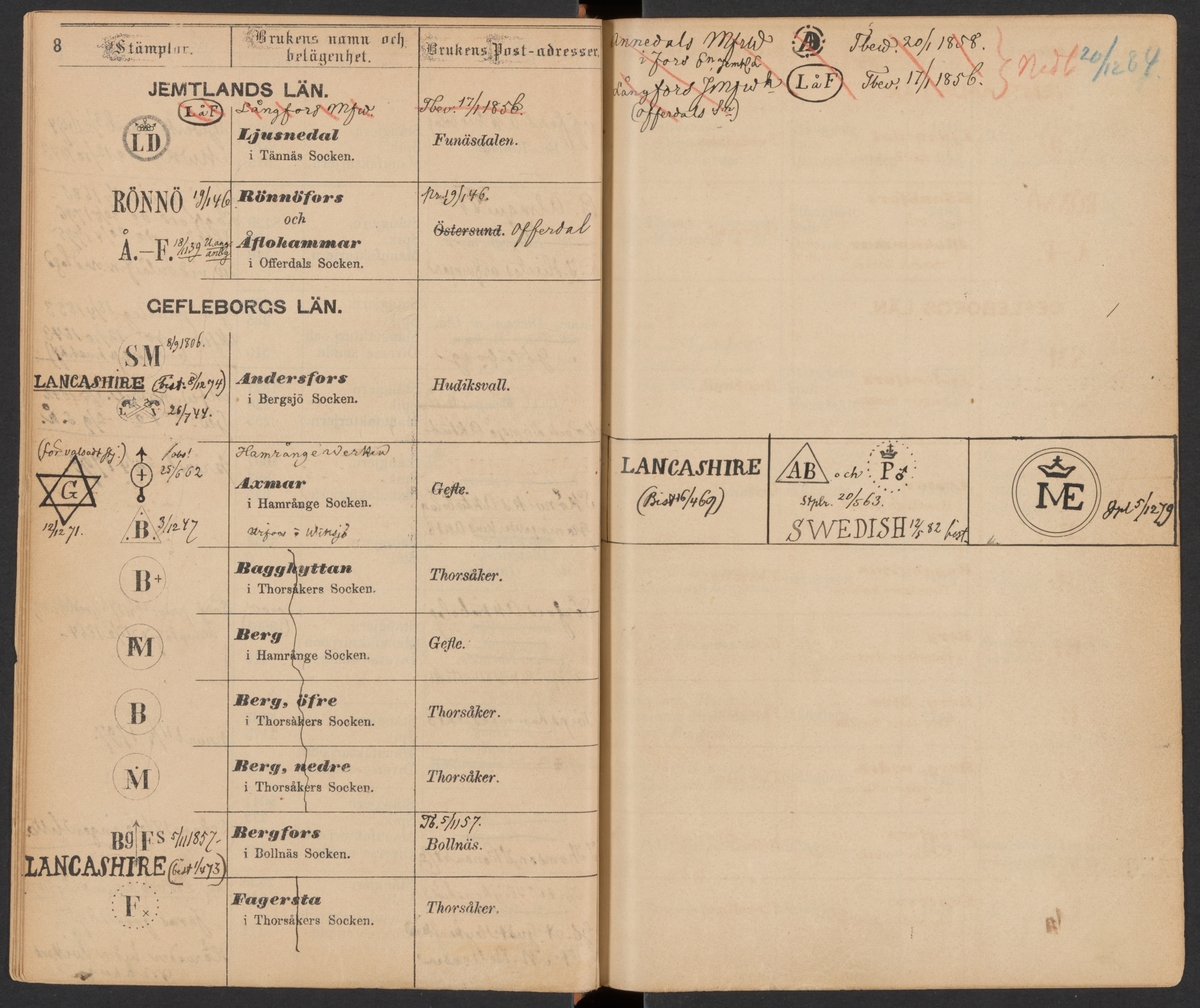 8
Stämplar.
Brukens namn och belägenhet.
Brukens Post-adresser.
JEMTLANDS LÄN.
LåF Långfors Mfw. Tbev. 17/1 1856.
LD
Ljusnedal
i Tännäs Socken.
Funäsdalen.
RÖNNÖ 19/1 46
Rönnöfors
och
Pr. 19/1 46.
Å.–F. 18/11 39
Åflohammar
i Offerdals Socken.
Östersund. Offerdal
GEFLEBORGS LÄN.
SM 8/9 1806.
LANCASHIRE (best. 8/12 74)
26/7 44.
Andersfors
i Bergsjö Socken.
Hudiksvall.
(för valsadt stj.)
G
12/12 71.
25/5 62
B 3/12 47
Hamrånge Verken
Axmar
i Hamrånge Socken.
Gefle.
B+
Bagghyttan
i Thorsåkers Socken.
Thorsåker.
FM
Berg
i Hamrånge Socken.
Gefle.
B
Berg, öfre
i Thorsåkers Socken.
Thorsåker.
M
Berg, nedre
i Thorsåkers Socken.
Thorsåker.
Bg Fs 5/11 1857.
LANCASHIRE (best 1/4 73)
Bergfors
i Bollnäs Socken.
Tb. 5/11 57.
Bollnäs.
F×
Fagersta
i Thorsåkers Socken.
Thorsåker.
Annedals Mfrw A Tbev. 20/1 1858.
i Fors Sn Jemtld
Nedl 20/12 84.
Långfors Jmfwk LåF Tbev. 17/1 1856.
(Offerdals Sn)
LANCASHIRE
(Best 16/4 69)
AB och P
Stplr. 20/5 63.
SWEDISH 12/5 82 best.
ME
Gpl 5/12 79